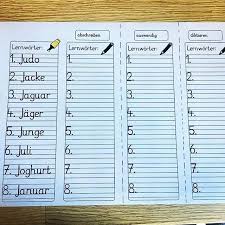 Lernwörter:
1. Judo
2. Jacke
3. Jaguar
4. Jäger
5. Junge
6. Juli
7. Joghurt
8. Januar
abschreiben
Lernwörter:
1.
2.
3.
4.
5.
6.
7.
8.
auswendig
Lernwörter:
1.
2.
3.
4.
5.
6.
7.
8.
diktieren
Lernwörter:
1.
2.
3.
4.
5.
6.
7.
8.